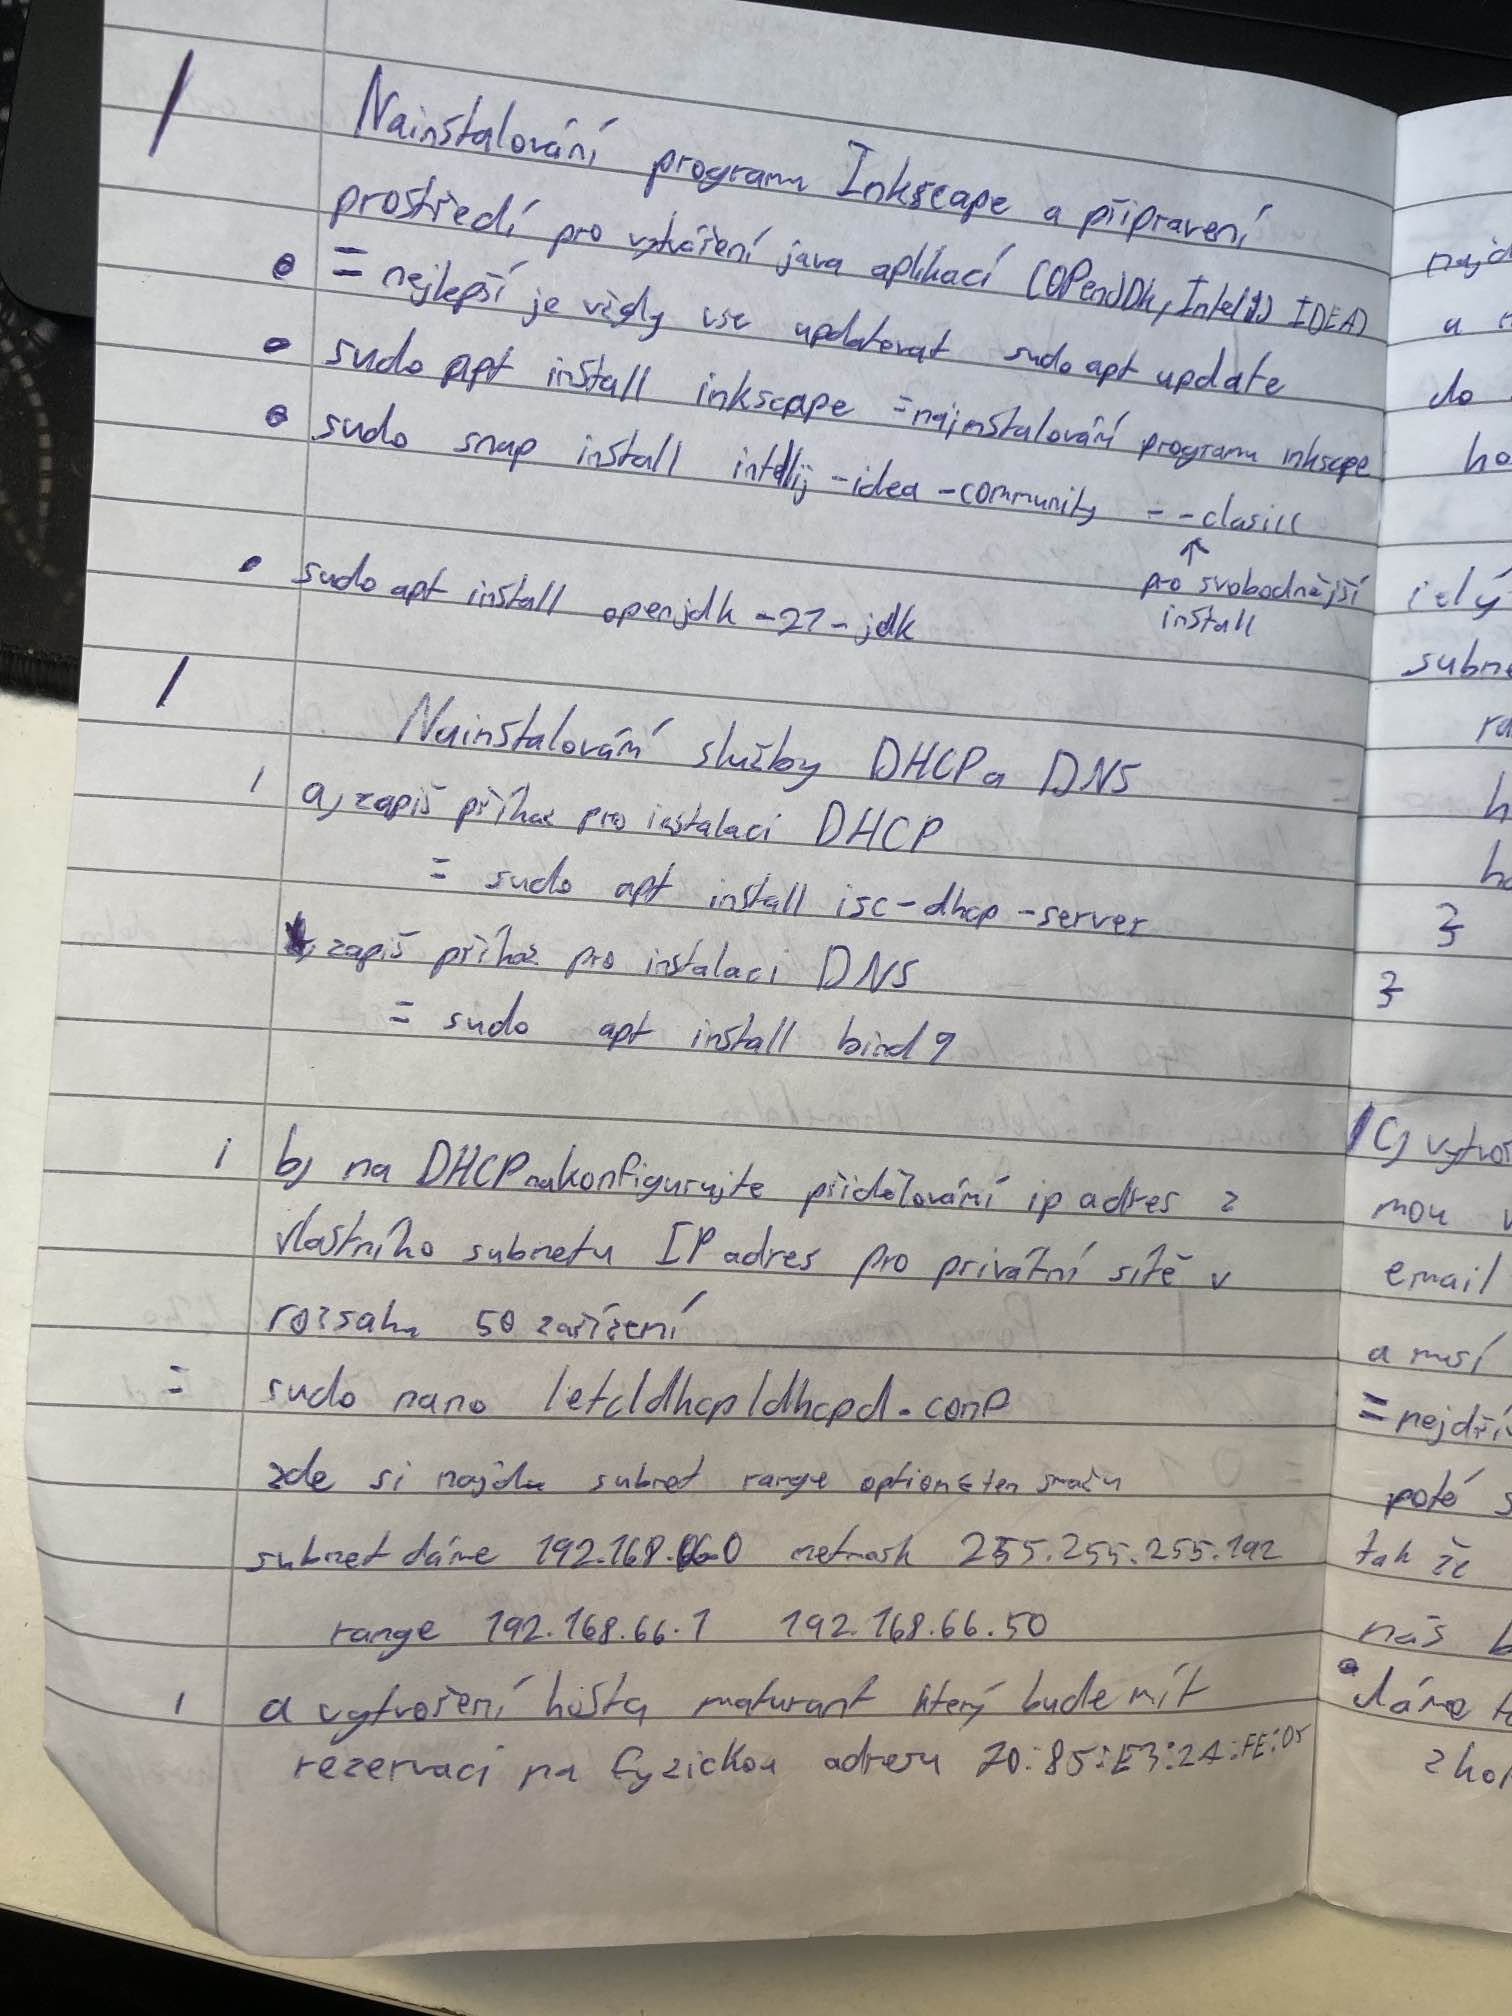 Nainstalování programu Inkscape a připravení
prostředí pro vytváření java aplikací (OPenJDk, IntelliJ IDEA)
= nejlepší je vždy vse updatovat sudo apt update
sudo apt install inkscape = nainstalování programu inkscape
sudo snap install intellij-idea-community --clasicc
↑
pro svobodnější
install
sudo apt install openjdk-21-jdk
Nainstalování služby DHCP a DNS
a) zapiš příkaz pro instalaci DHCP
= sudo apt install isc-dhcp-server
zapiš příkaz pro instalaci DNS
= sudo apt install bind9
b) na DHCP nakonfigurujte přidělování ip adres z
vlastního subnetu IP adres pro privátní sítě v
rozsahu 50 zařízení
= sudo nano /etc/dhcp/dhcpd.conf
zde si najdu subnet range option
subnet dáme 192.168. netmask 255.255.255.192
range 192.168.66.1 192.168.66.50
a vytvoření hosta maturant který bude mít
rezervaci na fyzickou adresu 20:85:E3:2A:FE:05
najd
a
do
ho
subne
h
ho
}
}
C) vytvoř
mou v
email
a musí
= nejdří
poté s
tak že
náš b
dáme t
z hos